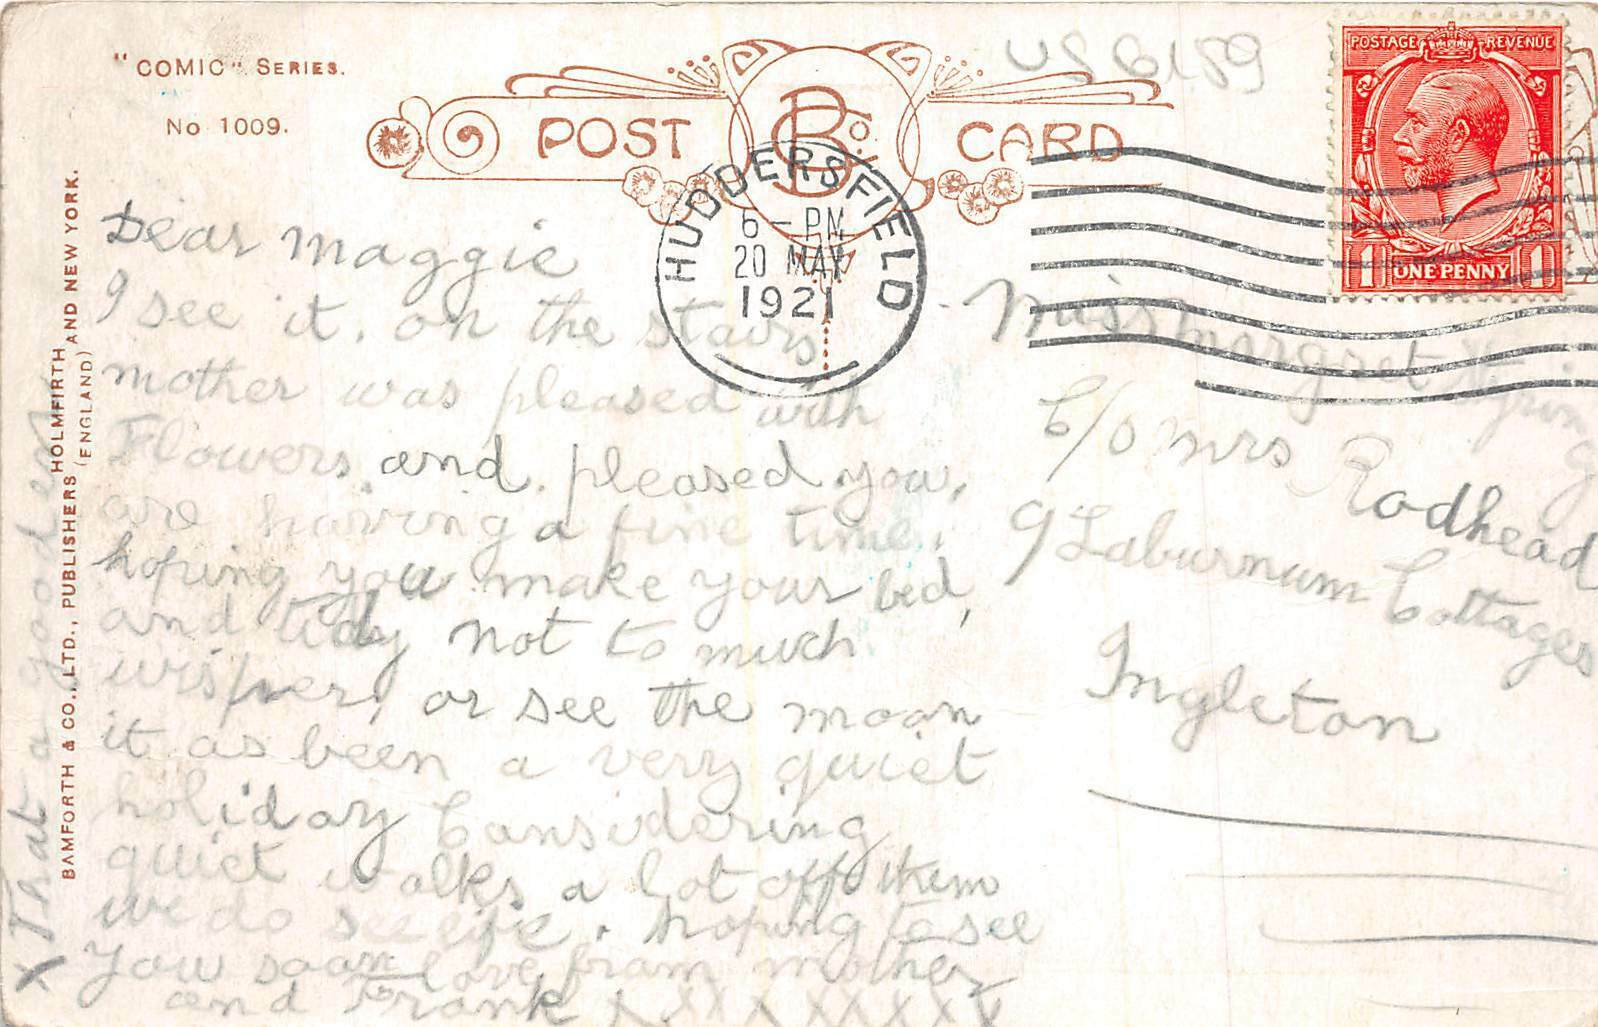 "COMIC" SERIES.
No 1009.
POST CARD
B & Co. Ld.
US 6159
HUDDERSFIELD
6 - PM
20 MAY
1921
POSTAGE REVENUE
1 ONE PENNY 1
BAMFORTH & CO., LTD., PUBLISHERS HOLMFIRTH (ENGLAND) AND NEW YORK.
Dear Maggie
I see it. on the stairs
mother was pleased with
Flowers. and. pleased you,
are having a fine time.
hoping you make your bed,
and tidy not to much
wisper, or see the moon
it as been a very quiet
holiday Considering
quiet walks a lot off them
we do see life. hoping to see
You soon love from mother
and Frank x xx x x x x x x
x That a good en
Miss Margret
C/o Mrs Rodhead
9 Laburnum Cottages
Ingleton